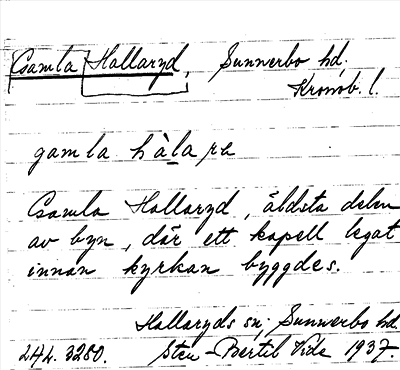 Gamla Hallaryd, Sunnerbo hd.
Kronob. l.
gamla hàlare
Gamla Hallaryd, äldsta delen
av byn, där ett kapell legat
innan kyrkan byggdes.
Hallaryds sn, Sunnerbo hd.
244. 3280. Sten-Bertil Vide 1937.